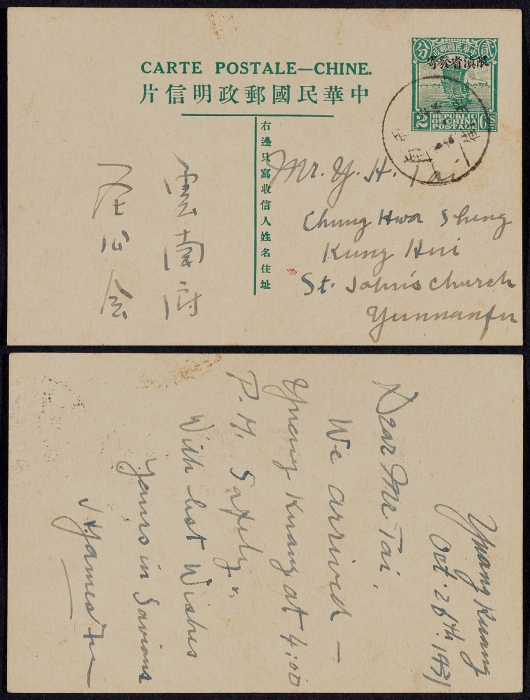 CARTE POSTALE—CHINE.
片信明政郵國民華中
分 中華民國郵政 貳
限滇省發寄
2 REPUBLIC OF CHINA POSTAGE CTS
右邊只寫收信人姓名住址
Mr. Y. H. Tai
Chung Hwa Sheng
Kung Hui
St. John's Church
Yunnanfu
雲南府
Yuang Kuang
Oct. 28th. 1931
Dear Mr. Tai,
We arrived —
Yuang Kuang at 4:00
P. M. Safely.
With best Wishes
Yours in Saviour